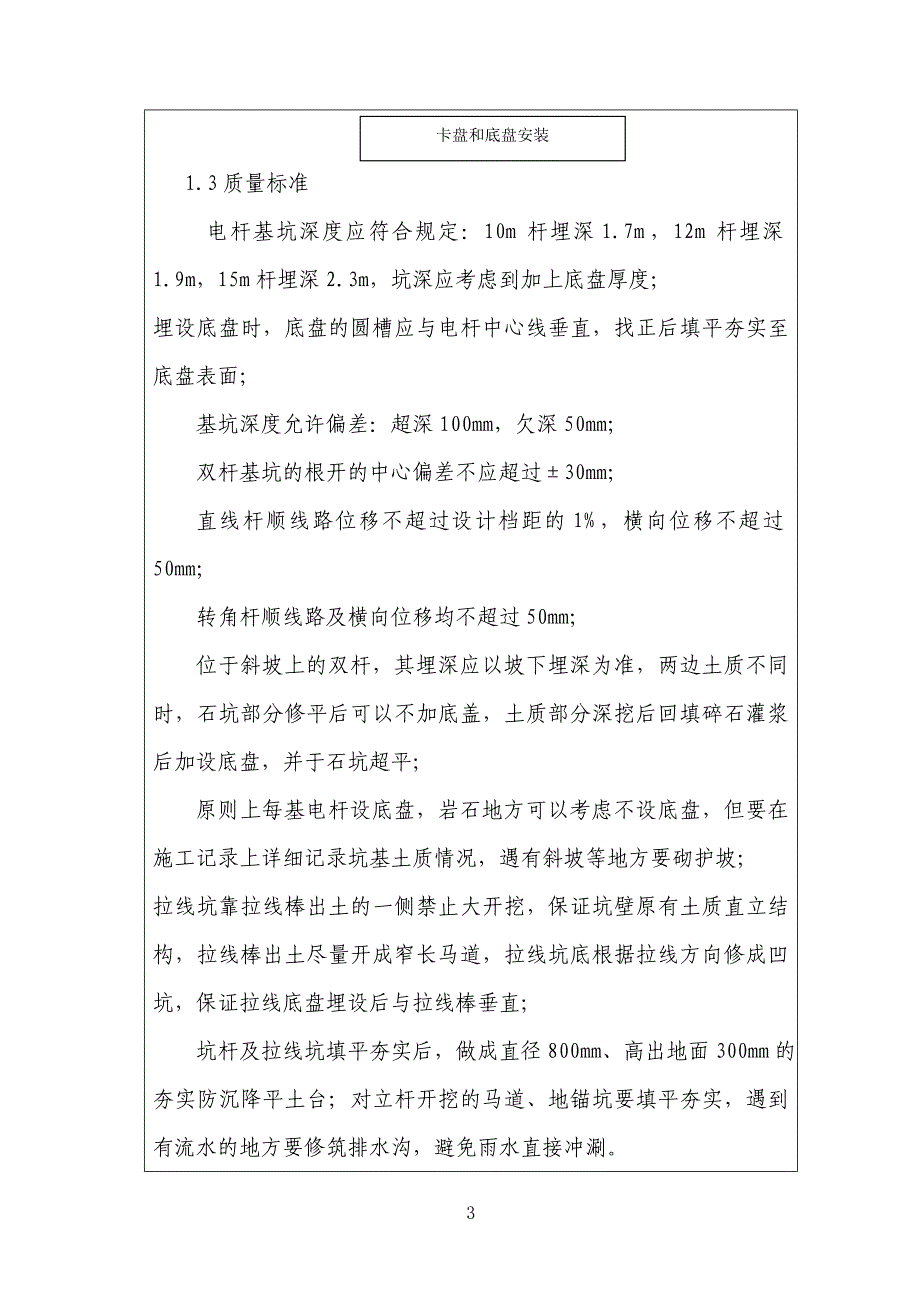 卡盘和底盘安装
1.3质量标准
电杆基坑深度应符合规定：10m 杆埋深 1.7m，12m 杆埋深
1.9m，15m杆埋深2.3m，坑深应考虑到加上底盘厚度；
埋设底盘时，底盘的圆槽应与电杆中心线垂直，找正后填平夯实至
底盘表面；
基坑深度允许偏差：超深100mm，欠深50mm；
双杆基坑的根开的中心偏差不应超过±30mm；
直线杆顺线路位移不超过设计档距的 1%，横向位移不超过
50mm；
转角杆顺线路及横向位移均不超过50mm；
位于斜坡上的双杆，其埋深应以坡下埋深为准，两边土质不同
时，石坑部分修平后可以不加底盖，土质部分深挖后回填碎石灌浆
后加设底盘，并于石坑超平；
原则上每基电杆设底盘，岩石地方可以考虑不设底盘，但要在
施工记录上详细记录坑基土质情况，遇有斜坡等地方要砌护坡；
拉线坑靠拉线棒出土的一侧禁止大开挖，保证坑壁原有土质直立结
构，拉线棒出土尽量开成窄长马道，拉线坑底根据拉线方向修成凹
坑，保证拉线底盘埋设后与拉线棒垂直；
坑杆及拉线坑填平夯实后，做成直径800mm、高出地面300mm的
夯实防沉降平土台；对立杆开挖的马道、地锚坑要填平夯实，遇到
有流水的地方要修筑排水沟，避免雨水直接冲涮。
3